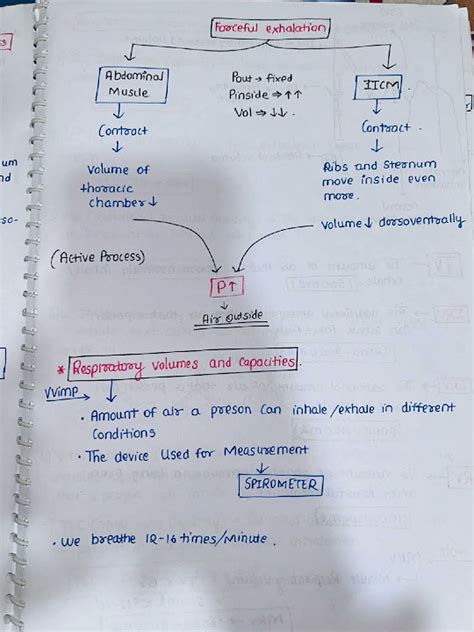 Forceful exhalation
Abdominal
Muscle
Pout → fixed
Pinside ⇒ ↑↑
Vol ⇒ ↓↓.
IICM
Contract
Contract.
Volume of
thoracic
chamber ↓
Ribs and Sternum
move inside even
more.
volume ↓ dorsoventrally.
(Active Process)
P↑
Air outside
* Respiratory volumes and capacities.
VVimp
• Amount of air a preson can inhale/exhale in different
Conditions
• The device Used for Measurement
SPIROMETER
• We breathe 12-16 times/Minute.